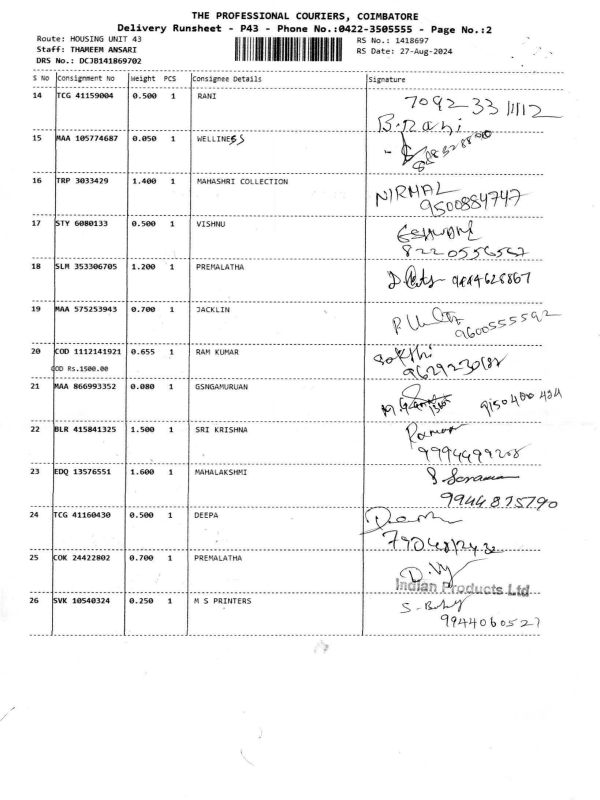 THE PROFESSIONAL COURIERS, COIMBATORE
Delivery Runsheet - P43 - Phone No.:0422-3505555 - Page No.:2
Route: HOUSING UNIT 43
RS No.: 1418697
Staff: THAMEEM ANSARI
RS Date: 27-Aug-2024
DRS No.: DCJB141869702
S No Consignment No Weight PCS Consignee Details Signature
14 TCG 41159004 0.500 1 RANI
B.Rani
15 MAA 105774687 0.050 1 WELLINESS
16 TRP 3033429 1.400 1 MAHASHRI COLLECTION NIRMAL
9500884747
17 STY 6080133 0.500 1 VISHNU
8220556567
18 SLM 353306705 1.200 1 PREMALATHA
19 MAA 575253943 0.700 1 JACKLIN
9600555592
20 COD 1112141921 0.655 1 RAM KUMAR Sakthi
COD Rs.1500.00
21 MAA 866993352 0.080 1 GSNGAMURUAN
22 BLR 415841325 1.500 1 SRI KRISHNA Raman
23 EDQ 13576551 1.600 1 MAHALAKSHMI
9944875790
24 TCG 41160430 0.500 1 DEEPA
25 COK 24422802 0.700 1 PREMALATHA
Indian Products Ltd
26 SVK 10540324 0.250 1 M S PRINTERS
9944060527